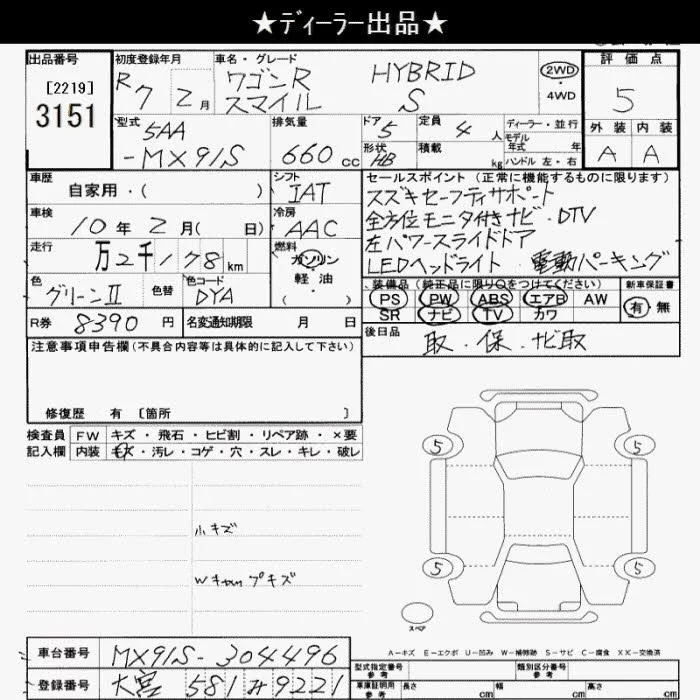 ★ディーラー出品★
出品番号 初度登録年月 車名・グレード 評価点
[2219] R7 2月 ワゴンR HYBRID 2WD
3151 スマイル S ・4WD 5
型式 排気量 ドア 定員 ディーラー・並行 外装 内装
5AA 660cc 5 4人 モデル年式 年 A A
-MX91S 形状 HB 積載 kg ハンドル 左・右
車歴 シフト セールスポイント(正常に機能するものに限ります)
自家用・( ) IAT スズキセーフティサポート
車検 冷房 全方位モニタ付きナビ・DTV
10年2月( 日) AAC 左パワースライドドア
走行 燃料 LEDヘッドライト・電動パーキング
万2千178km ガソリン
色 色替 色コード 軽油 装備品(純正品に限り○をつけてください) 新車保証書
グリーンⅡ DYA ( ) PS PW ABS エアB AW 有・無
R券 8390円 名変通知期限 月 日 SR ナビ TV カワ
注意事項申告欄(不具合内容等は具体的に記入して下さい) 後日品
取・保・ナビ取
修復歴 有 [箇所 ]
検査員 FW キズ・飛石・ヒビ割・リペア跡・×要
記入欄 内装 キズ・汚レ・コゲ・穴・スレ・キレ・破レ
5 5
小キズ
5 5
Wキャップキズ
スペア
A-キズ E-エクボ U-凹み W-補修跡 S-サビ C-腐食 XX-交換済
車台番号 MX91S-304496 型式指定番号 参考 類別区分番号 参考
登録番号 大宮 581 み 9221 車庫証明用 参考 長さ cm 幅 cm 高さ cm